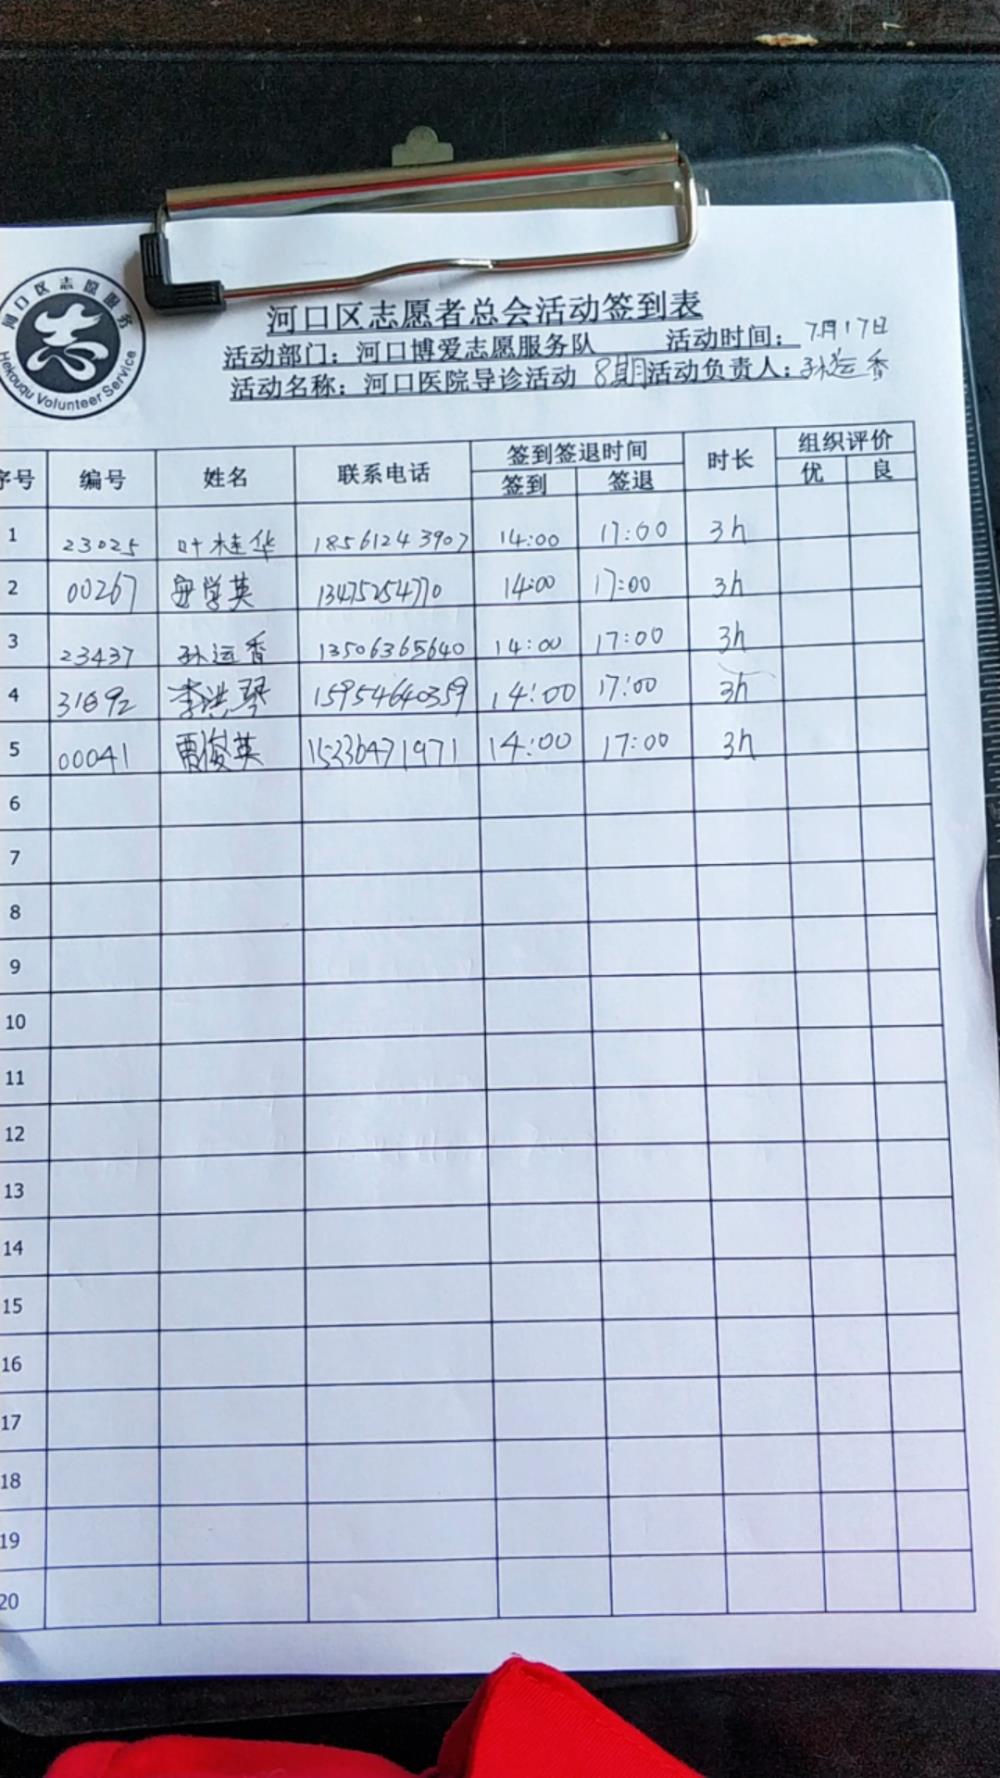 河口区志愿服务
Hekouqu Volunteer Service
河口区志愿者总会活动签到表
活动部门：河口博爱志愿服务队 活动时间：7月17日
活动名称：河口医院导诊活动 8期 活动负责人：孙运香
序号 编号 姓名 联系电话 签到签退时间 时长 组织评价
签到 签退 优 良
1 23025 叶桂华 18561243907 14:00 17:00 3h
2 00267 安学英 13475254770 14:00 17:00 3h
3 23437 孙运香 13506365640 14:00 17:00 3h
4 31892 李洪琴 15954640359 14:00 17:00 3h
5 00041 贾俊英 14:00 17:00 3h
6
7
8
9
10
11
12
13
14
15
16
17
18
19
20